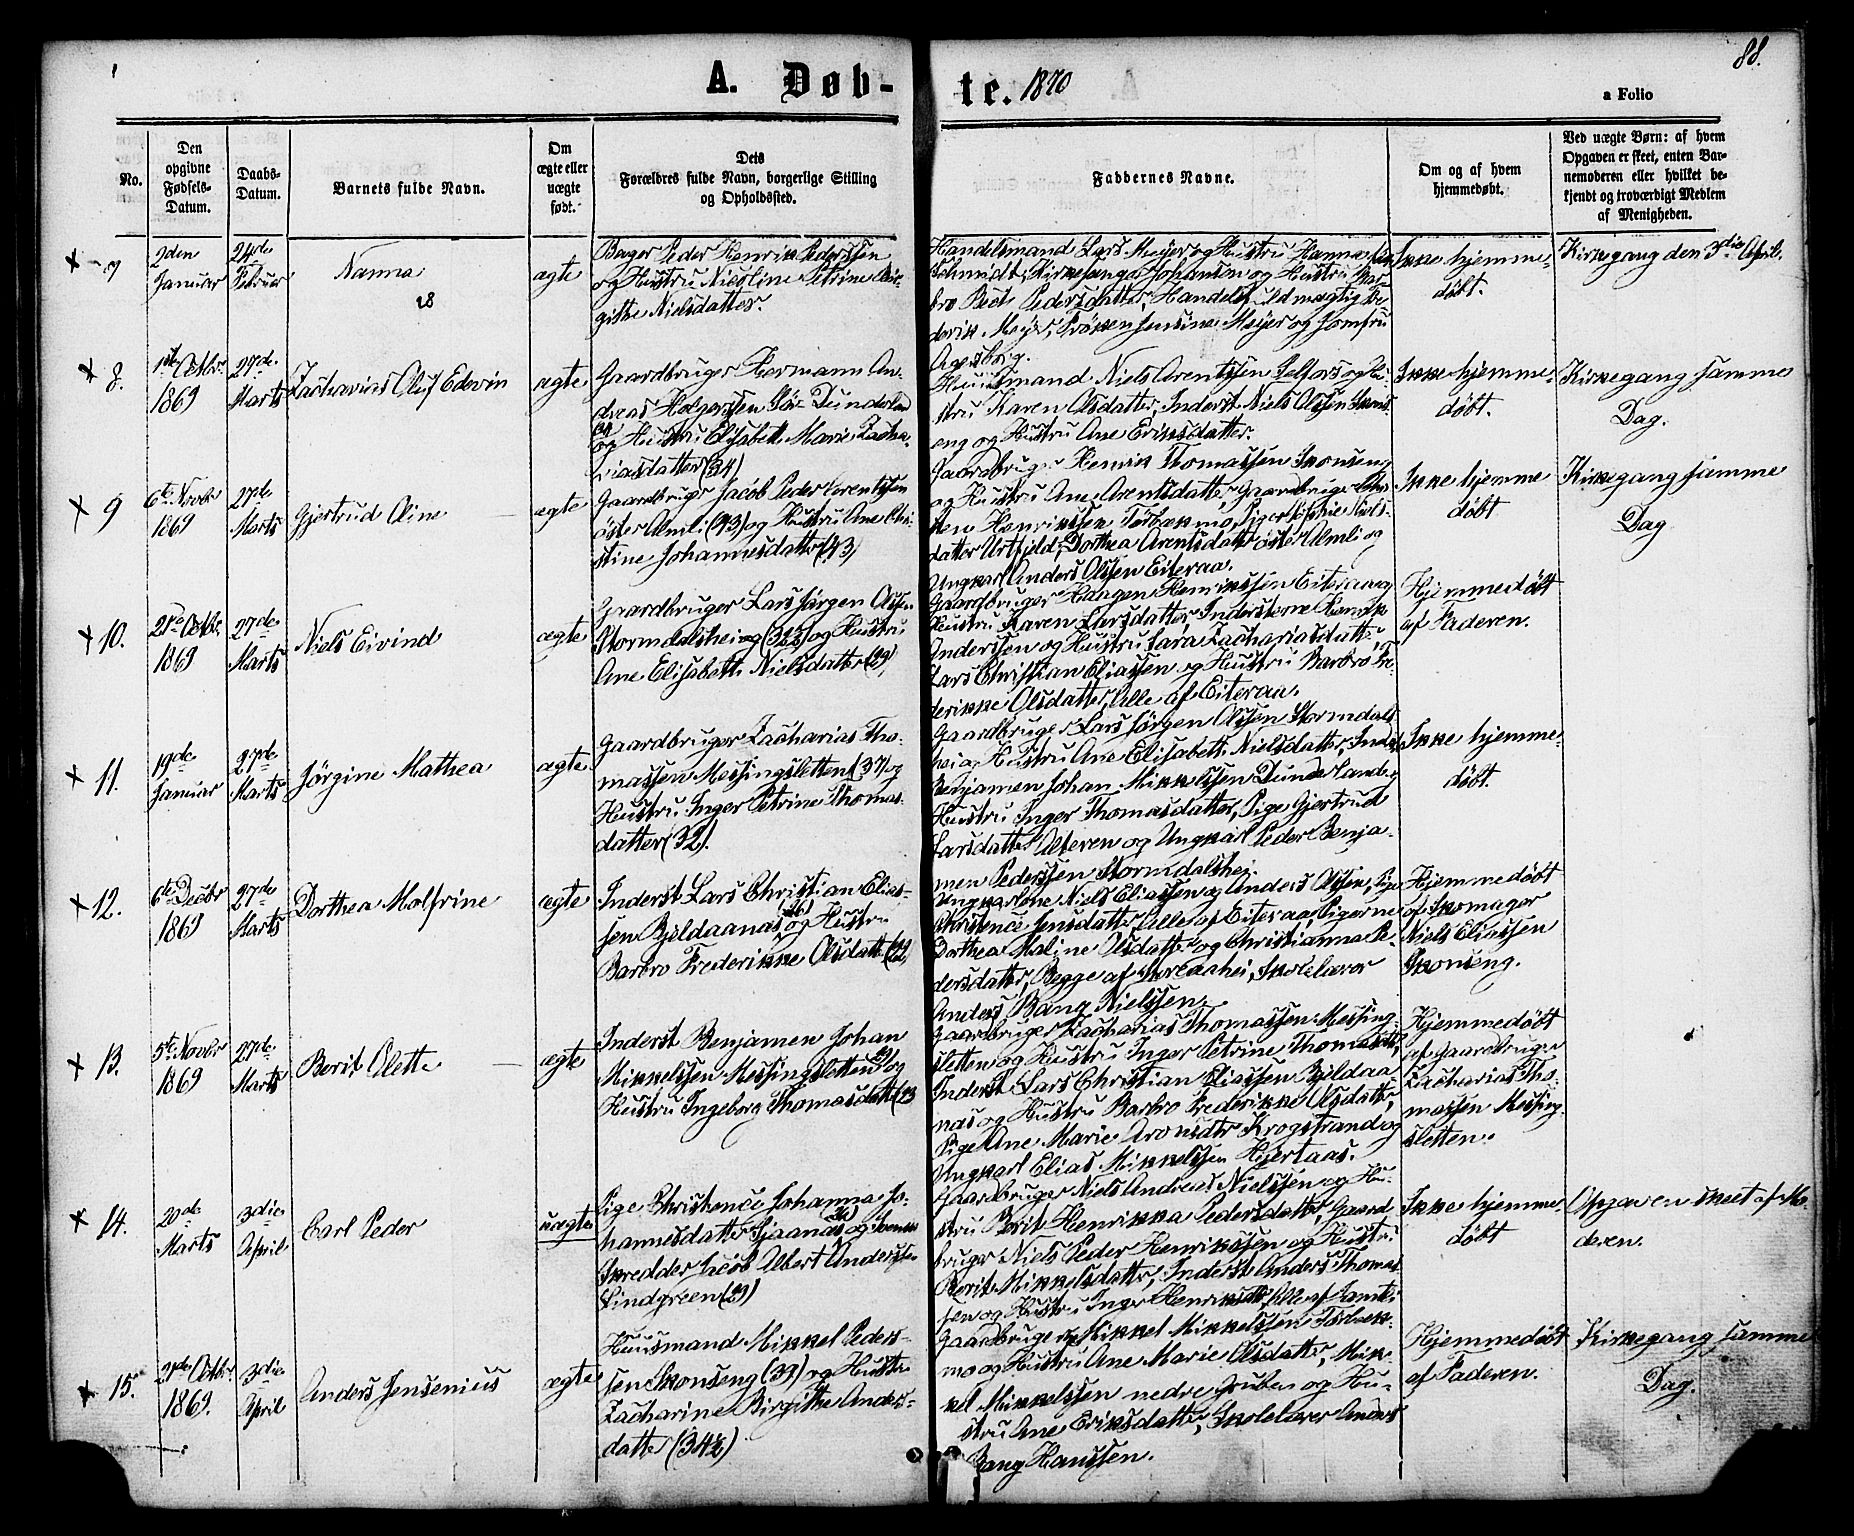 88.
A. Døb-
te. 1870
a Folio
No.
Den
opgivne
Fødsels-
Datum.
Daabs-
Datum.
Barnets fulde Navn.
Om
ægte eller
uægte
født.
Dets
Forældres fulde Navn, borgerlige Stilling
og Opholdssted.
Faddernes Navne.
Om og af hvem
hjemmedøbt.
Ved uægte Børn: af hvem
Opgaven er skeet, enten Bar-
nemoderen eller hvilket be-
kjendt og troværdigt Medlem
af Menigheden.
7
2den
Januar
24de
Februar
Nanna
ægte
Bager Peder Henrik Pederssen
og Hustru Nicoline Petrine Bir-
githe Nielsdatter.
Handelsmand Lars Meyer og Hustru Hanna
Schmidt, Kirkesanger Johansen og Hustru Bar-
bro Pedersdatter, Handelsfuldmægtig
Meyer, Frøken Jensine Meyer og Jomfru
Aagesborg.
Ikke hjemme-
døbt.
Kirkegang den 3die April.
8.
1ste Octbr.
1869
27de
Marts
Zacharias Oluf Edevin
ægte
Gaardbruger Hermann An-
dreas Holgerssen Dunderland
og Hustru Elisabeth Marie Zacha-
riasdatter (34)
Huusmand Niels Arentssen Selfors og Hu-
stru Karen Olsdatter, Inderst Niels Olssen Skons-
eng og Hustru Ane Eriksdatter.
Ikke hjemme-
døbt.
Kirkegang samme
Dag.
9
6te Novbr
1869
27de
Marts
Gjertrud Oline
ægte
Gaardbruger Jacob Peder Arentssen
øster Almli (43) og Hustru Ane Chri-
stine Johannesdatter (43)
Gaardbruger Henrik Thomassen Skonseng
og Hustru Ane Arentsdatter, Gaardbruger
Henrikssen Tørbækmo, Piger Sophie Niels-
datter Urtfjeld, Dorthea Arentsdatter øster Almli og
Ungkarl Anders Olssen Eiteraa.
Ikke hjemme
døbt
Kirkegang samme
Dag
10.
21de Octbr.
1869
27de
Marts
Niels Eivind
ægte
Gaardbruger Lars Jørgen Olssen
Stormdalshei og Hustru
Ane Elisabeth Nielsdatter (29)
Gaardbruger Haagen Henrikssen Eiteraa og
Hustru Karen Larsdatter, Inderstene Henrik
Anderssen og Hustru Sara Zachariasdatter
Lars Christian Eliassen og Hustru Barbro Fre-
derikke Olsdatter, Alle af Eiteraa.
Hjemmedøbt
af Faderen.
11.
19de
Januar
27de
Marts
Jørgine Mathea
ægte
Gaardbruger Zacharias Tho-
massen Messingsletten (37) og
Hustru Inger Petrine Thomas-
datter (32).
Gaardbruger Lars Jørgen Olssen Stormdals-
hei og Hustru Ane Elisabeth Nielsdatter, Inderst
Benjamen Johan Mikkelssen Dunderland og
Hustru Inger Thomasdatter, Pige Gjertrud
Larsdatter Alteren og Ungkarl Peder Benja-
men Pederssen Stormdalshei.
Ikke hjemme-
døbt.
12.
6te Decbr
1869
27de
Marts
Dorthea Molfrine
ægte
Inderst Lars Christian Elias-
sen Bjeldaanas og Hustru
Barbro Frederikke Olsdatter
Ungkarlene Niels Eliassen og Anders Olssen, Pige
Christence Jensdatter, Alle af Eiteraa, Pigerne
Dorthea Maline Olsdatter og Christianna Pe-
dersdatter, Begge af Storaahei, Skolelærer
Anders Bang Nielssen.
Hjemmedøbt
af Skomager
Niels Eliassen
Skonseng.
13.
5te Novbr
1869
27de
Marts
Berit Olette
ægte
Inderst Benjamen Johan
Mikkelssen Messingsletten og
Hustru Ingeborg Thomasdatter
Gaardbruger Zacharias Thomassen Messing-
sletten og Hustru Inger Petrine Thomasdatter,
Inderst Lars Christian Eliassen Bjeldaa-
nas og Hustru Barbro Frederikke Olsdatter,
Pige Ane Marie Aronsdtr Krogstrand og
Ungkarl Elias Mikkelssen Hjertaas.
Hjemmedøbt
af Gaardbruger
Zacharias Tho-
massen Messing-
sletten.
14.
20de
Marts
3die
April
Carl Peder
uægte
Pige Christence Johanna Jo-
hannesdatter og
Skredder Jacob Albert Anderssen
Lindgreen (29)
Gaardbruger Niels Andreas Nielssen og Hu-
stru Berit Henrikka Pedersdatter, Gaard-
bruger Niels Peder Henrikssen og Hustru
Berit Mikkelsdatter, Inderst Anders Thomas-
sen og Hustru Inger Henriksdtr, Alle af
Ikke hjemme-
døbt
Opgaven skeet af Mo-
deren.
15.
21de Octbr.
1869.
3die
April
Anders Jensenius
ægte
Huusmand Mikkel Peders-
sen Skonseng (39) og Hustru
Zacharine Birgithe Anders-
datter (34½)
Gaardbruger Mikkel Mikkelssen Tørbæk-
mo og Hustru Ane Marie Olsdatter, Mik-
kel Mikkelssen nedre Gruben og Hu-
stru Ane Eriksdatter, Skolelærer Anders
Bang Hanssen.
Hjemmedøbt
af Faderen.
Kirkegang samme
Dag.